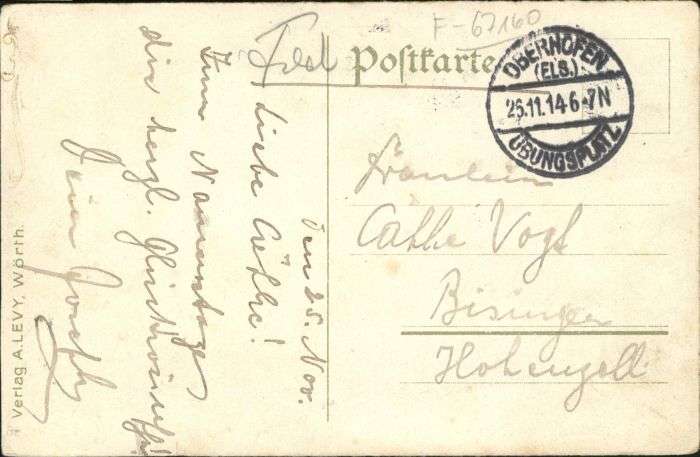 F-67160
Feldpostkarte
OBERHOFEN
(ELS.)
25.11.14 6-7N
ÜBUNGSPLATZ
Den 25. Nov.
Liebe Cäthe!
Zum Namenstage
die herzl. Glückwünsche!
Dein Joseph
Fräulein
Cäthe Vogt
Bisingen
Hohenzoll
Verlag A. LEVY, Wörth.